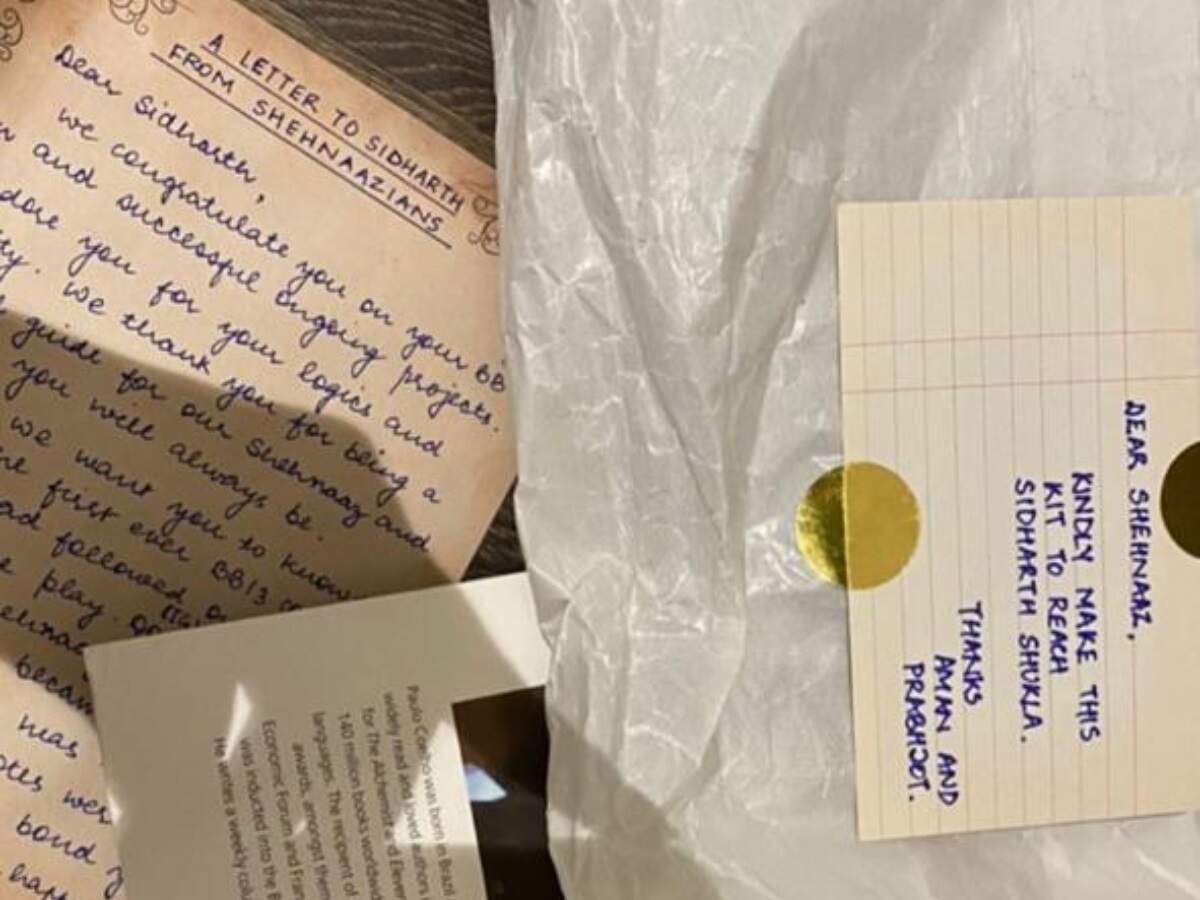 A LETTER TO SIDHARTH
FROM SHEHNAAZIANS
Dear Sidharth,
we congratulate you on your BB
and successful ongoing projects.
you for your logics and
we thank you for being a
guide for our Shehnaaz and
you will always be.
we want you to know
first ever BB13
followed
play
became
was
bond
DEAR SHEHNAAZ,
KINDLY MAKE THIS
KIT TO REACH
SIDHARTH SHUKLA.
THANKS
AMAN AND
PRABHJOT.
Paulo Coelho was born in Brazil
widely read and loved authors
for The Alchemist and Eleven
140 million books worldwid
languages. The recipient of
awards, amongst them
Economic Forum and Fran
was inducted into the
He writes a weekly colu